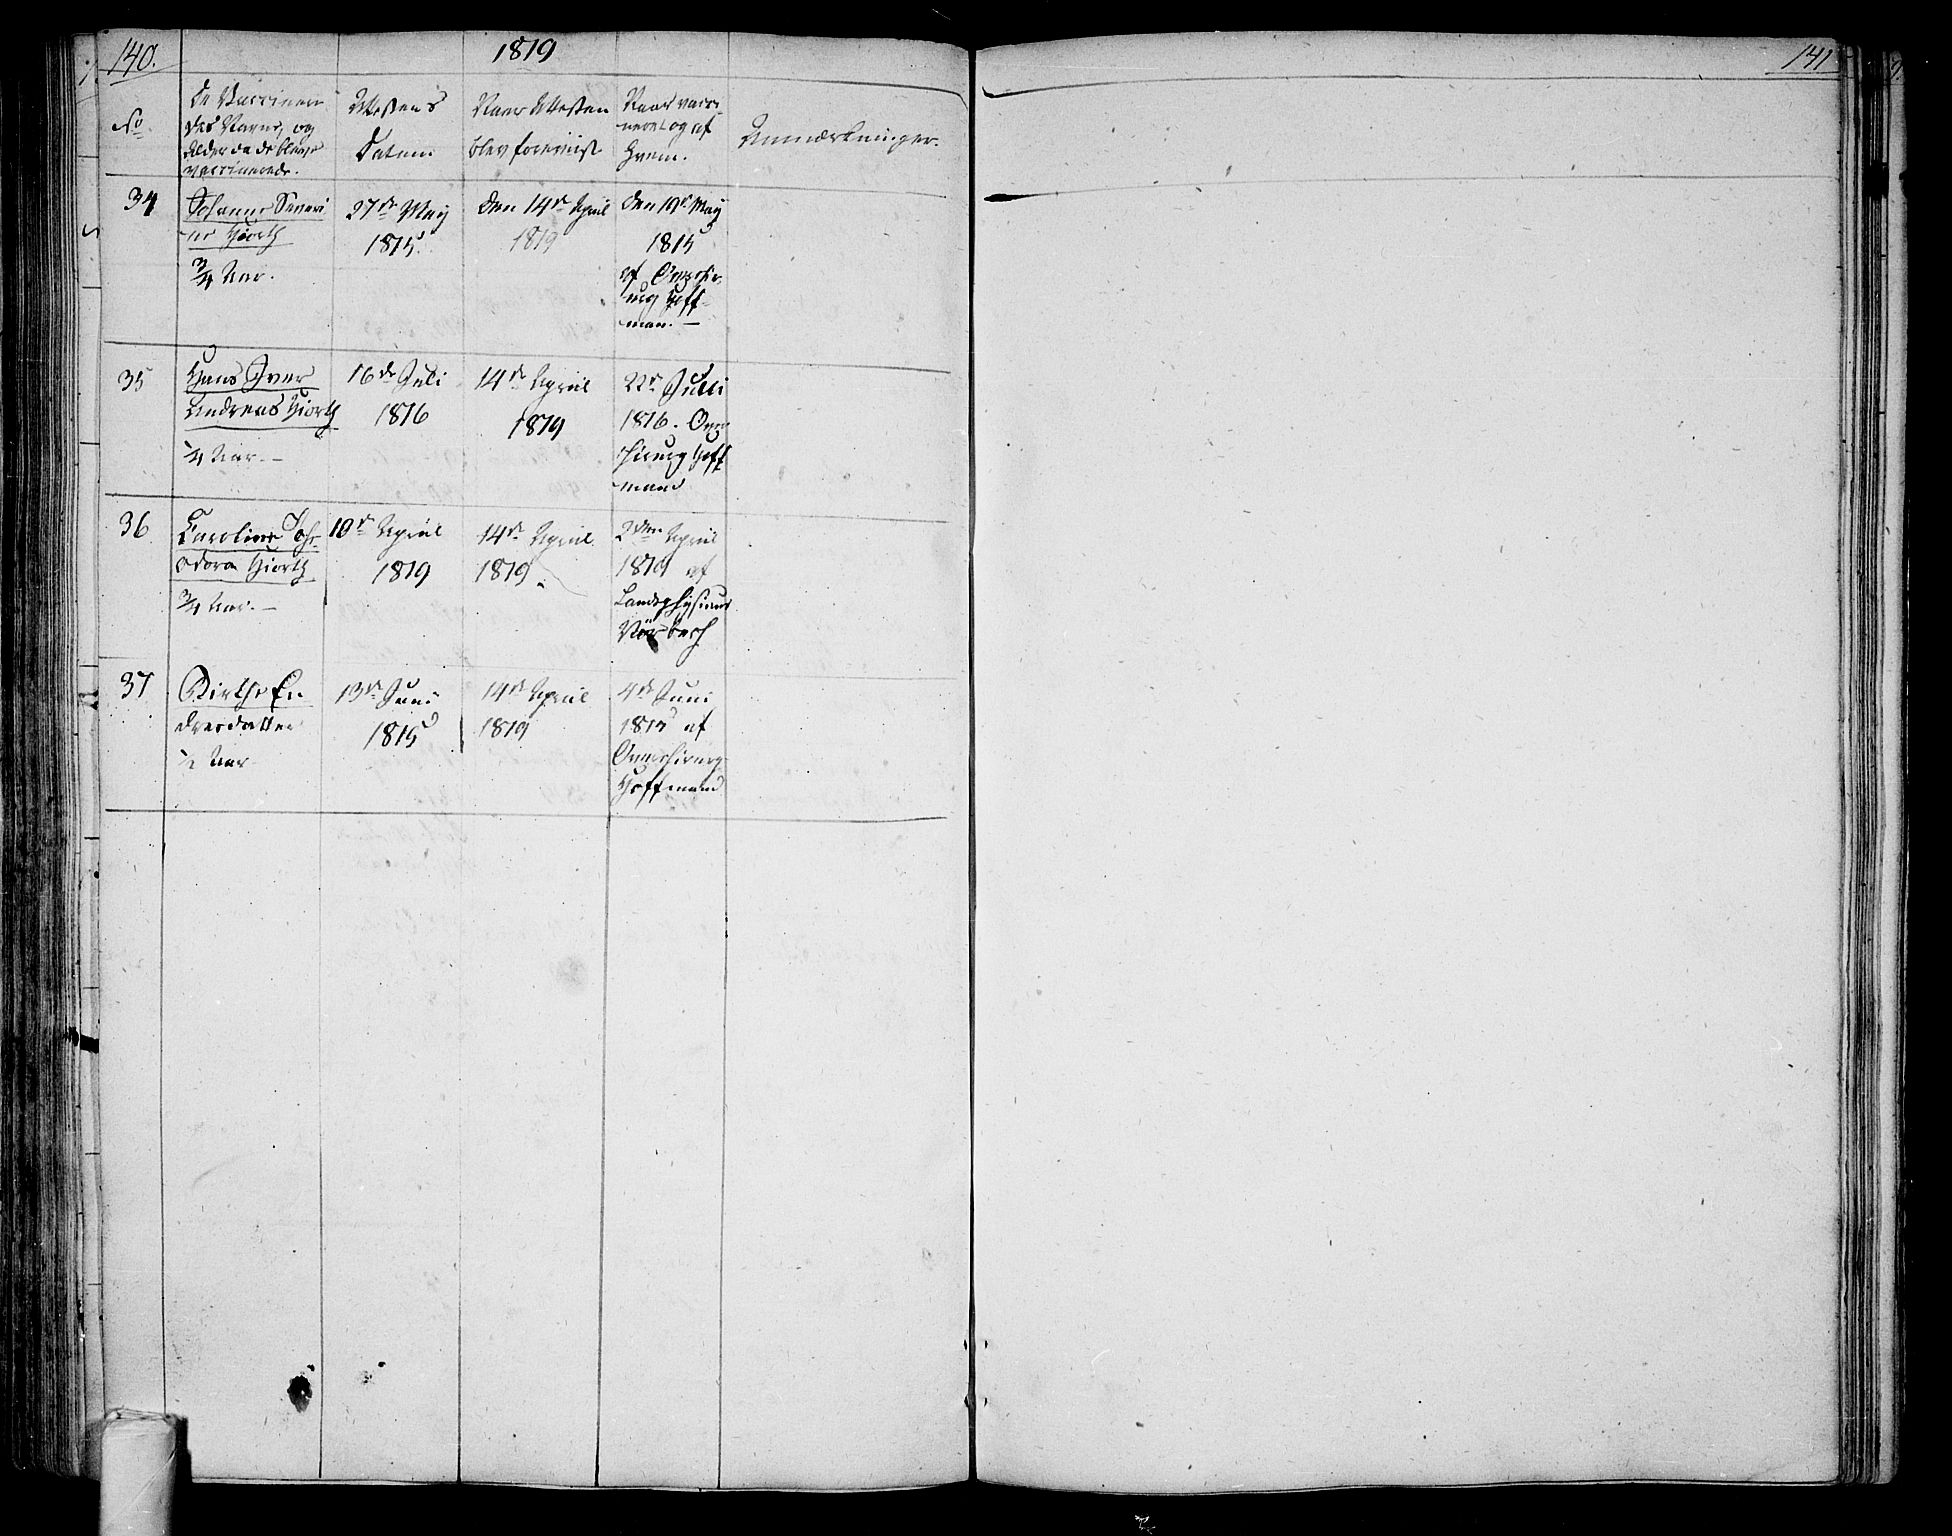 140.
1819
No
De Vaccinere-
des Navne, og
Alder da de bleve
vaccinerede.
Attestens
Datum
Naar Attesten
blev foreviist
Naar vacci-
neret og af
Hvem.
Anmærkninger.
34
Johanne Severi-
ne Hiorth
3/4 Aar.
27de May
1815
den 14de April
1819
den 19de May
1815
af Overchir-
urg Hoff-
man. —
35
Hans Iver
Andreas Hiorth
1/4 Aar. —
16de Juli
1816
14de April
1819
22de Julii
1816. Over-
chirurg Hoff-
mand
36
Caroline
odora Hiorth
3/4 Aar. —
10de April
1819
14de April
1819.
2den April
1819 af
Landsphysicus
37
Birthe En-
dresdatter
1/2 Aar
13de Juni
1815
14de April
1819
4de Juni
1815 af
Overchirurg
Hoffmand
141